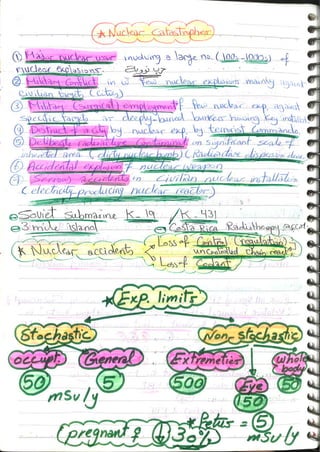 * Nuclear Catastrophes
① Major nuclear war involving a large no. (100s-1000s) of
nuclear explosions. حرب نووية
② Military Conflict in w few nuclear explosions mainly against
civilian target (cities)
③ Military (surgical) employment of few nuclear exp. against
specific targets or deeply-buried bunker housing key
④ Destruct of a city by nuclear exp. by terrorist Commando
⑤ Deliberate radioactive Contaminat on significant scale of
inhabited area (dirty nuclear bomb) (Radioactive dispersion device
⑥ Accidental explosion of nuclear weapon
Serious accidents in civilian nuclear installation
(electricity-producing nuclear reactor)
Soviet Submarine K-19 / K-431
3 mile island Costa Rica Radiotherapy
* Nuclear accidents Loss of Control (regulation)
uncontrolled chain react
Loss of Coolant
* Exp. limits
Stochastic Non-stochastic
occupt. General Extremeties whole body
50 5 500 50
mSv/y Eye
150
* Fetus = 5
pregnant ♀ ↓ 30% mSv/y